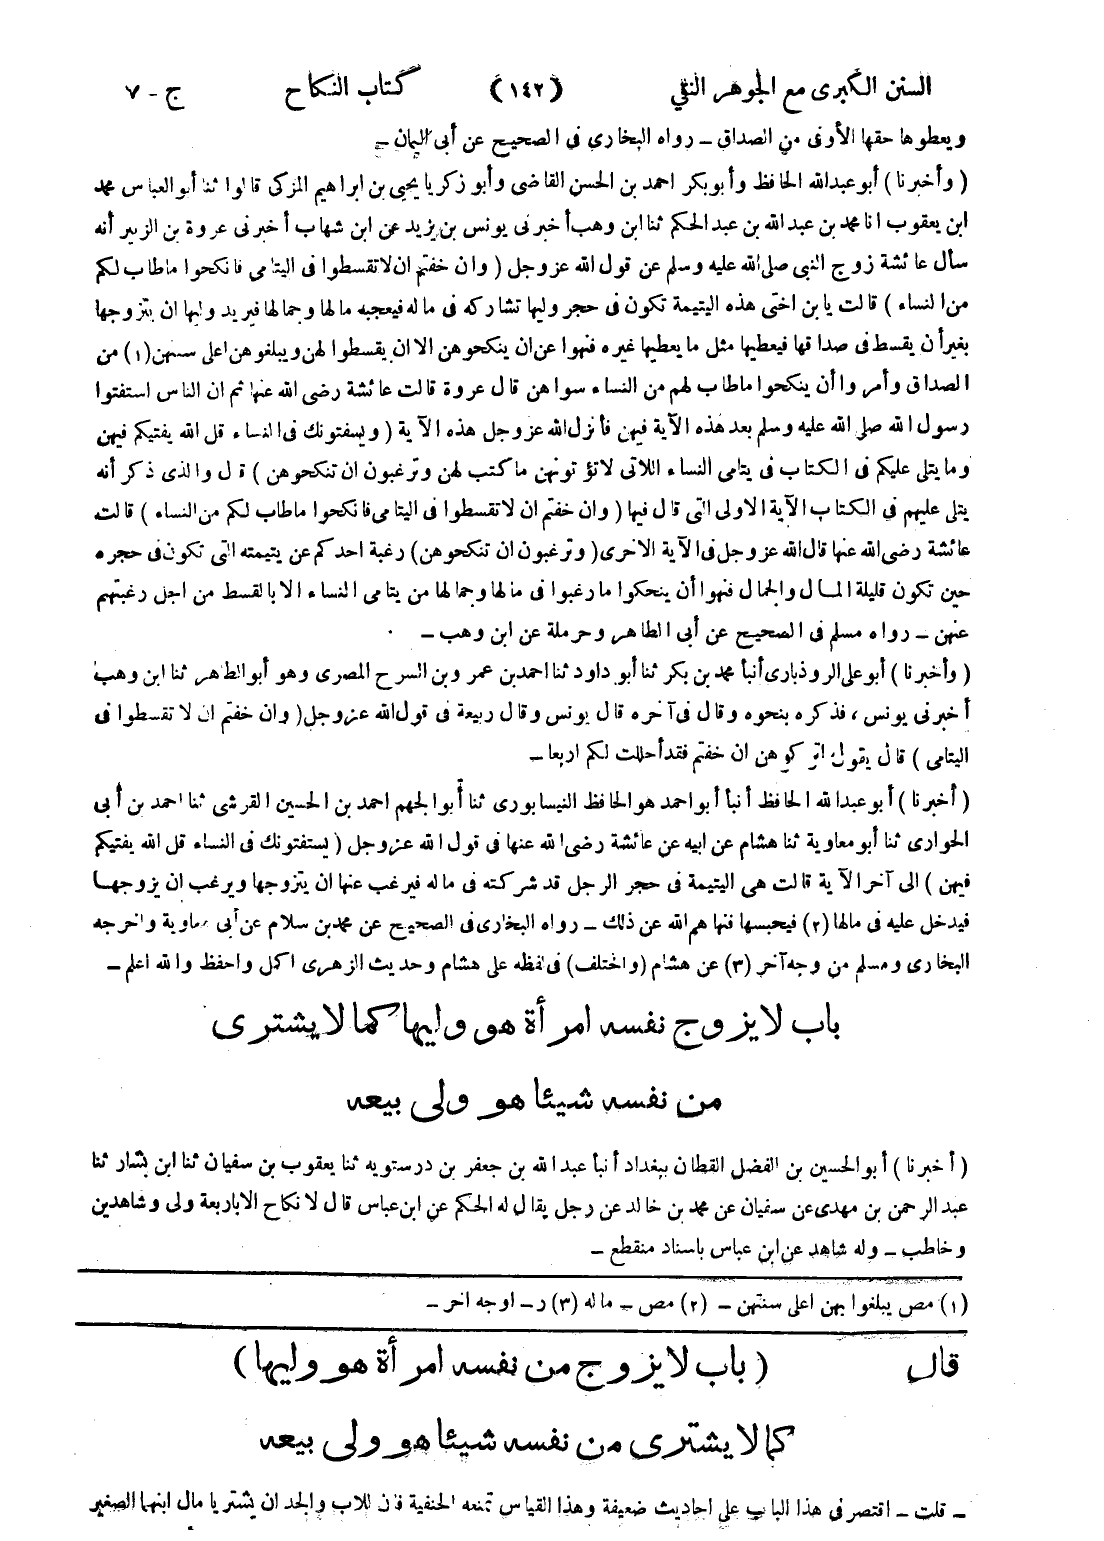 السنن الكبرى مع الجوهر النقي (١٤٢) كتاب النكاح ج - ٧
ويعطوها حقها الأوفى من الصداق ــ رواه البخارى فى الصحيح عن أبى اليمان ــ
( وأخبرنا ) أبو عبدالله الحافظ وأبو بكر احمد بن الحسن القاضى وأبو زكريا يحيى بن ابراهيم المزكى قالوا ثنا أبو العباس محمد
ابن يعقوب انا محمد بن عبدالله بن عبد الحكم ثنا ابن وهب أخبرنى يونس بن يزيد عن ابن شهاب أخبرنى عروة بن الزبير أنه
سأل عائشة زوج النبى صلى الله عليه وسلم عن قول الله عز وجل ( وان خفتم ان لا تقسطوا فى اليتامى فانكحوا ما طاب لكم
من النساء ) قالت يا بن اختى هذه اليتيمة تكون فى حجر وليها تشاركه فى ماله فيعجبه مالها وجمالها فيريد وليها ان يتزوجها
بغير أن يقسط فى صداقها فيعطيها مثل ما يعطيها غيره فنهوا عن ان ينكحوهن الا ان يقسطوا لهن ويبلغوهن اعلى سنتهن (١) من
الصداق وأمروا أن ينكحوا ما طاب لهم من النساء سواهن قال عروة قالت عائشة رضى الله عنها ثم ان الناس استفتوا
رسول الله صلى الله عليه وسلم بعد هذه الآية فيهن فأنزل الله عز وجل هذه الآية ( ويستفتونك فى النساء قل الله يفتيكم فيهن
وما يتلى عليكم فى الكتاب فى يتامى النساء اللاتى لا تؤتونهن ما كتب لهن وترغبون ان تنكحوهن ) قال والذى ذكر أنه
يتلى عليهم فى الكتاب الآية الاولى التى قال فيها ( وان خفتم ان لا تقسطوا فى اليتامى فانكحوا ما طاب لكم من النساء ) قالت
عائشة رضى الله عنها قال الله عز وجل فى الآية الاخرى ( وترغبون ان تنكحوهن ) رغبة احدكم عن يتيمته التى تكون فى حجره
حين تكون قليلة المال والجمال فنهوا أن ينحكوا ما رغبوا فى مالها وجمالها من يتامى النساء الا بالقسط من اجل رغبتهم
عنهن ــ رواه مسلم فى الصحيح عن أبى الطاهر وحرملة عن ابن وهب ــ
( وأخبرنا ) أبو على الروذبارى أنبأ محمد بن بكر ثنا أبو داود ثنا احمد بن عمرو بن السرح المصرى وهو أبو الطاهر ثنا ابن وهب
أخبرنى يونس ، فذكره بنحوه وقال فى آخره قال يونس وقال ربيعة فى قول الله عز وجل ( وان خفتم ان لا تقسطوا فى
اليتامى ) قال يقول اتركوهن ان خفتم فقد أحللت لكم اربعا ــ
( أخبرنا ) أبو عبدالله الحافظ أنبأ أبو احمد هو الحافظ النيسابورى ثنا أبو الجهم احمد بن الحسين القرشى ثنا احمد بن أبى
الحوارى ثنا أبو معاوية ثنا هشام عن ابيه عن عائشة رضى الله عنها فى قول الله عز وجل ( يستفتونك فى النساء قل الله يفتيكم
فيهن ) الى آخر الآية قالت هى اليتيمة فى حجر الرجل قد شركته فى ماله فيرغب عنها ان يتزوجها ويرغب ان يزوجها
فيدخل عليه فى مالها (٢) فيحبسها فنهاهم الله عن ذلك ــ رواه البخارى فى الصحيح عن محمد بن سلام عن أبى معاوية واخرجه
البخارى ومسلم من وجه آخر (٣) عن هشام (واختلف) فى لفظه على هشام وحديث الزهرى اكمل واحفظ والله اعلم ــ
باب لا يزوج نفسه امرأة هو وليها كما لا يشترى
من نفسه شيئا هو ولى بيعه
( أخبرنا ) أبو الحسين بن الفضل القطان ببغداد أنبأ عبد الله بن جعفر بن درستويه ثنا يعقوب بن سفيان ثنا ابن بشار ثنا
عبد الرحمن بن مهدى عن سفيان عن محمد بن خالد عن رجل يقال له الحكم عن ابن عباس قال لا نكاح الا باربعة ولى وشاهدين
وخاطب ــ وله شاهد عن ابن عباس باسناد منقطع ــ
(١) مص يبلغوا بهن اعلى سنتهن ــ (٢) مص ــ ماله (٣) ر ــ اوجه اخر ــ
قال ( باب لا يزوج من نفسه امرأة هو وليها )
كما لا يشترى من نفسه شيئا هو ولى بيعه
ــ قلت ــ اقتصر فى هذا الباب على احاديث ضعيفة وهذا القياس تمنعه الحنفية فان للاب والجد ان يشتريا مال ابنهما الصغير